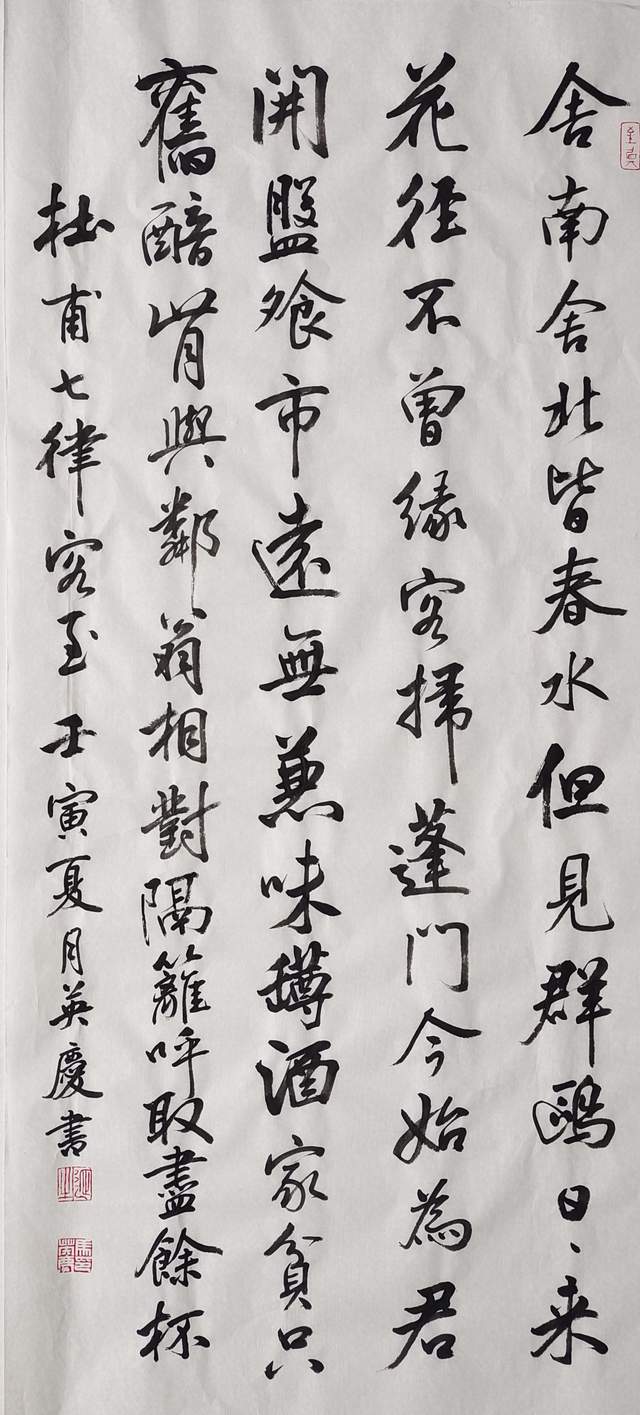 舍南舍北皆春水但見群鷗日、来
花径不曾缘客掃蓬門今始為君
開盤飧市遠無兼味罇酒家貧只
舊醅肯與鄰翁相對隔籬呼取盡餘杯
杜甫七律客至壬寅夏月英慶書